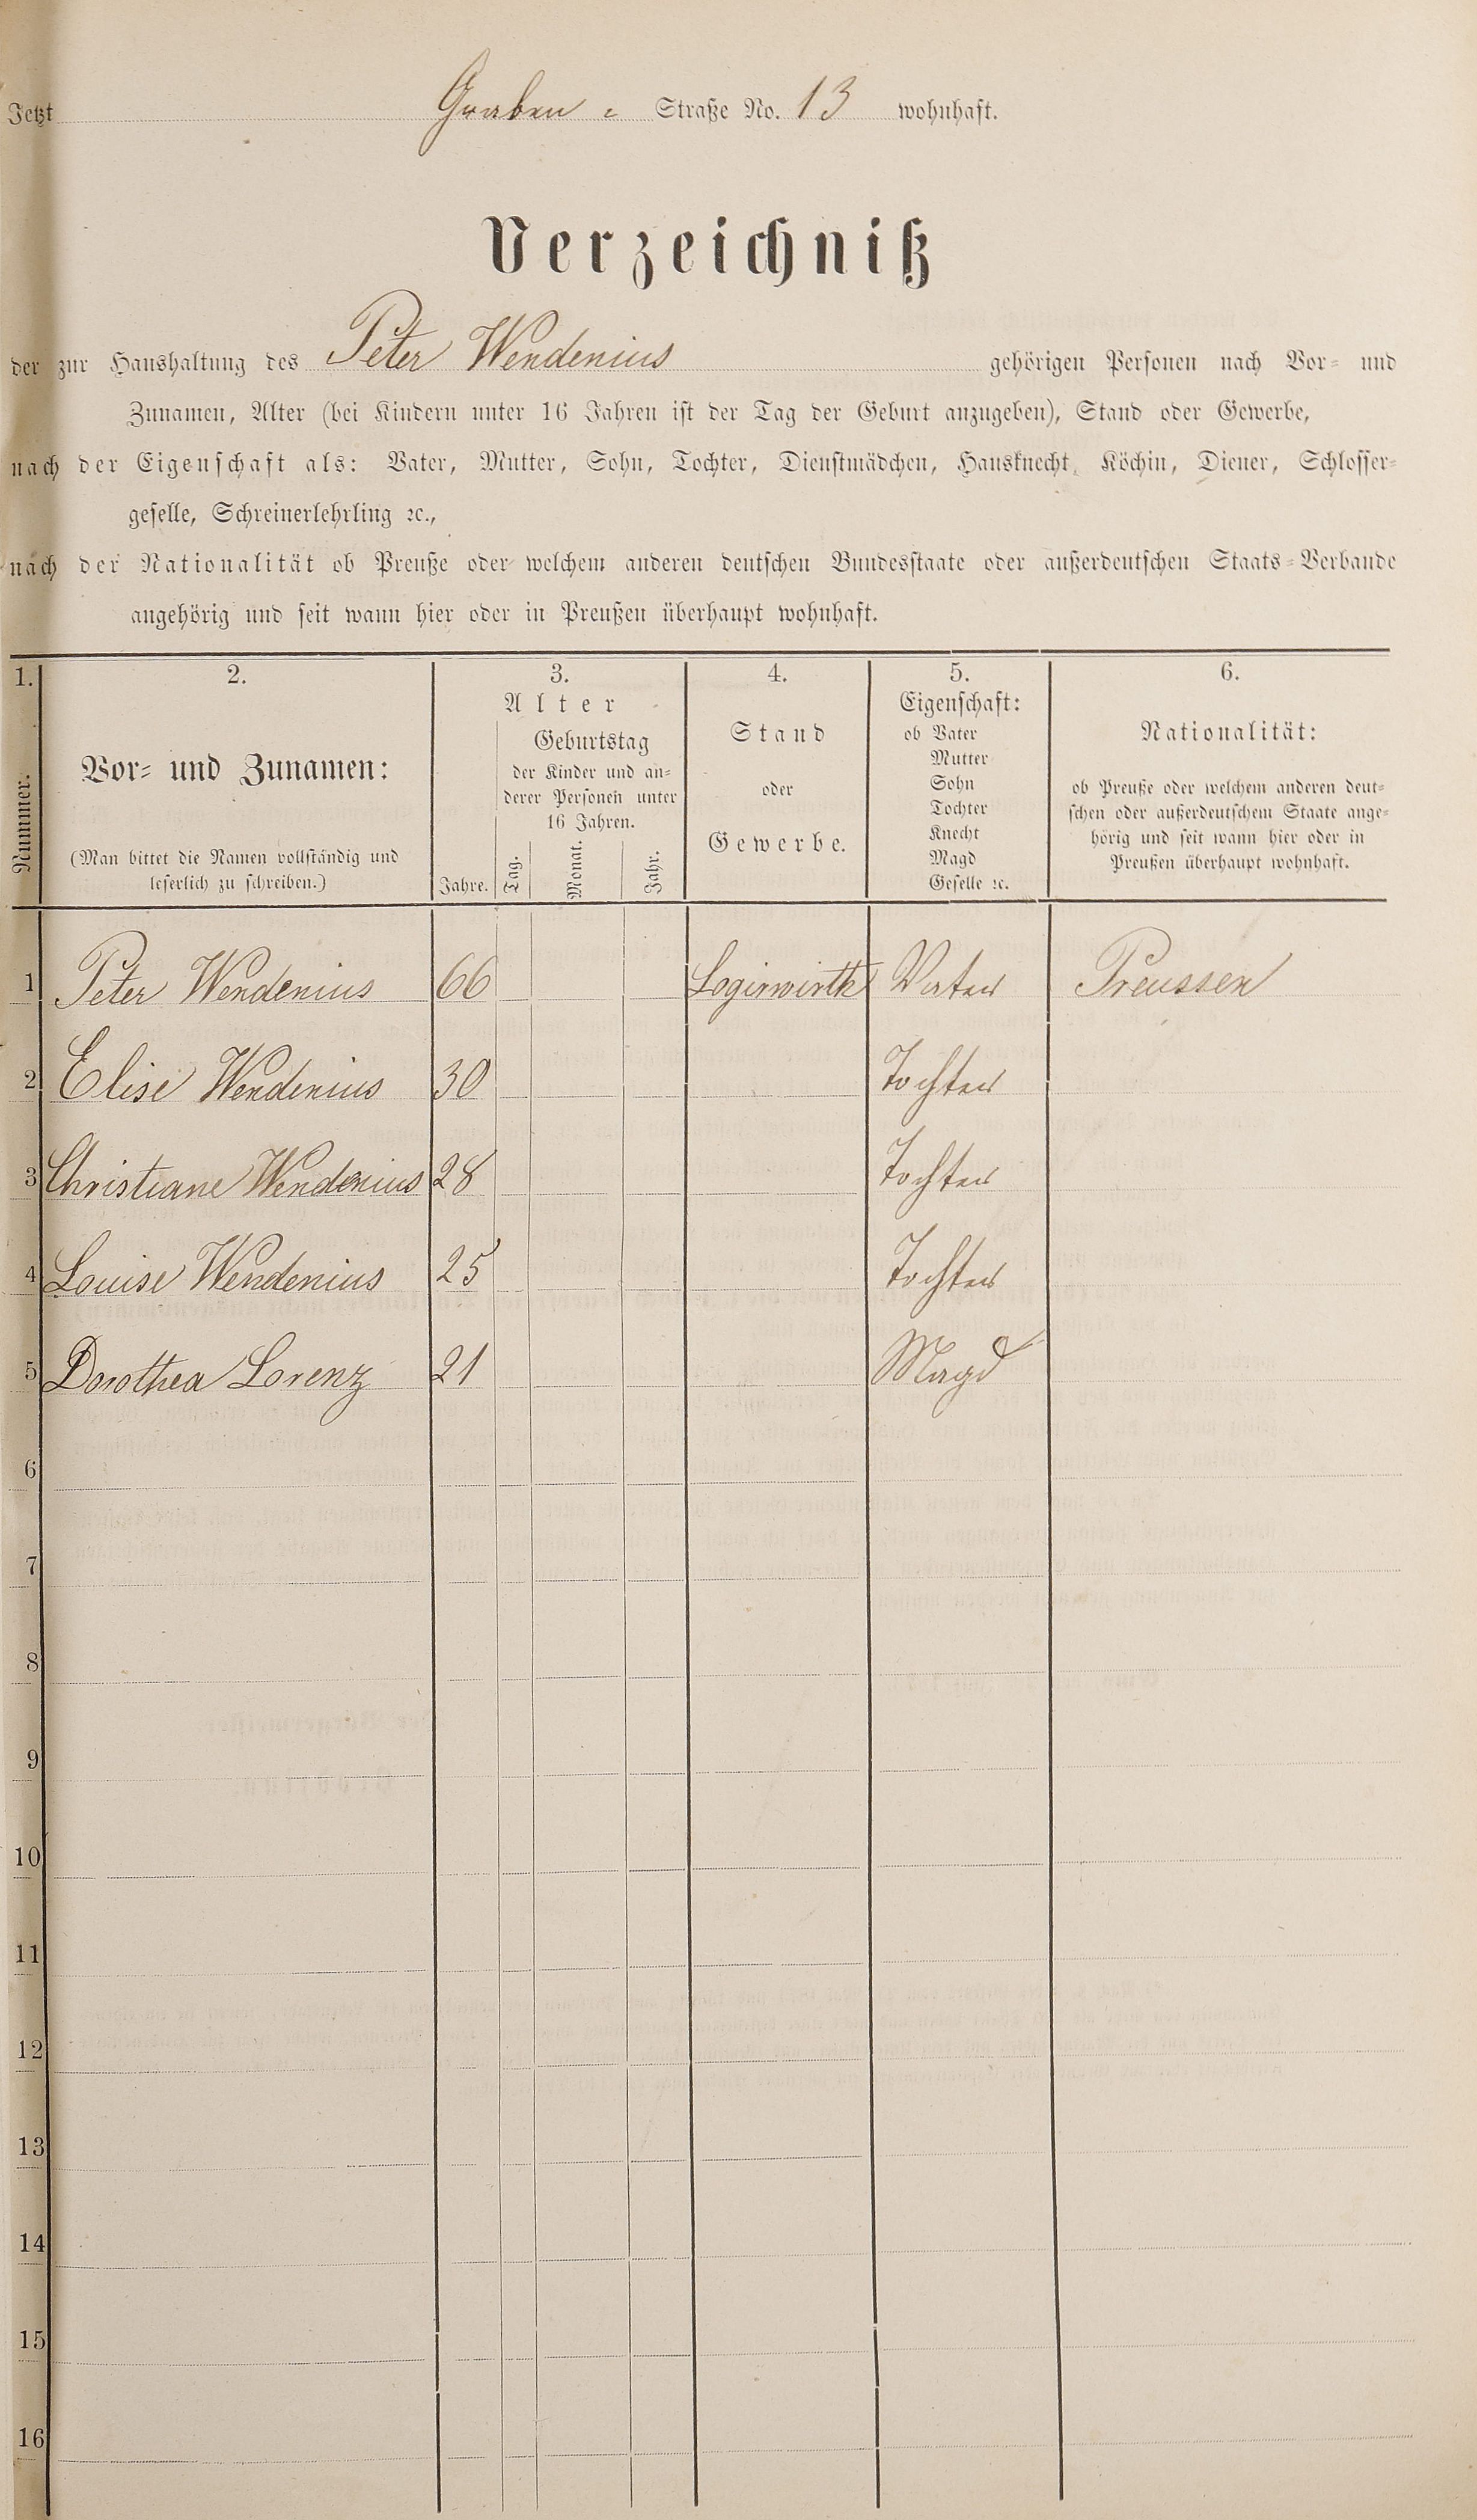 Jetzt Graben = Straße No. 13 wohnhaft.
Verzeichniß
der zur Haushaltung des Peter Wendenius gehörigen Personen nach Vor= und
Zunamen, Alter (bei Kindern unter 16 Jahren ist der Tag der Geburt anzugeben), Stand oder Gewerbe,
nach der Eigenschaft als: Vater, Mutter, Sohn, Tochter, Dienstmädchen, Hausknecht, Köchin, Diener, Schlosser=
geselle, Schreinerlehrling ꝛc.,
nach der Nationalität ob Preuße oder welchem anderen deutschen Bundesstaate oder außerdeutschen Staats=Verbande
angehörig und seit wann hier oder in Preußen überhaupt wohnhaft.
1. 2. 3. 4. 5. 6.
Nummer.
Vor= und Zunamen:
(Man bittet die Namen vollständig und
leserlich zu schreiben.)
Alter
Geburtstag
der Kinder und an=
derer Personen unter
16 Jahren.
Jahre. Tag. Monat. Jahr.
Stand
oder
Gewerbe.
Eigenschaft:
ob Vater
Mutter
Sohn
Tochter
Knecht
Magd
Geselle ꝛc.
Nationalität:
ob Preuße oder welchem anderen deut=
schen oder außerdeutschem Staate ange=
hörig und seit wann hier oder in
Preußen überhaupt wohnhaft.
1 Peter Wendenius 66 Logirwirth Vater Preussen
2 Elise Wendenius 30 Tochter
3 Christiane Wendenius 28 Tochter
4 Louise Wendenius 25 Tochter
5 Dorothea Lorenz 21 Magd
6
7
8
9
10
11
12
13
14
15
16